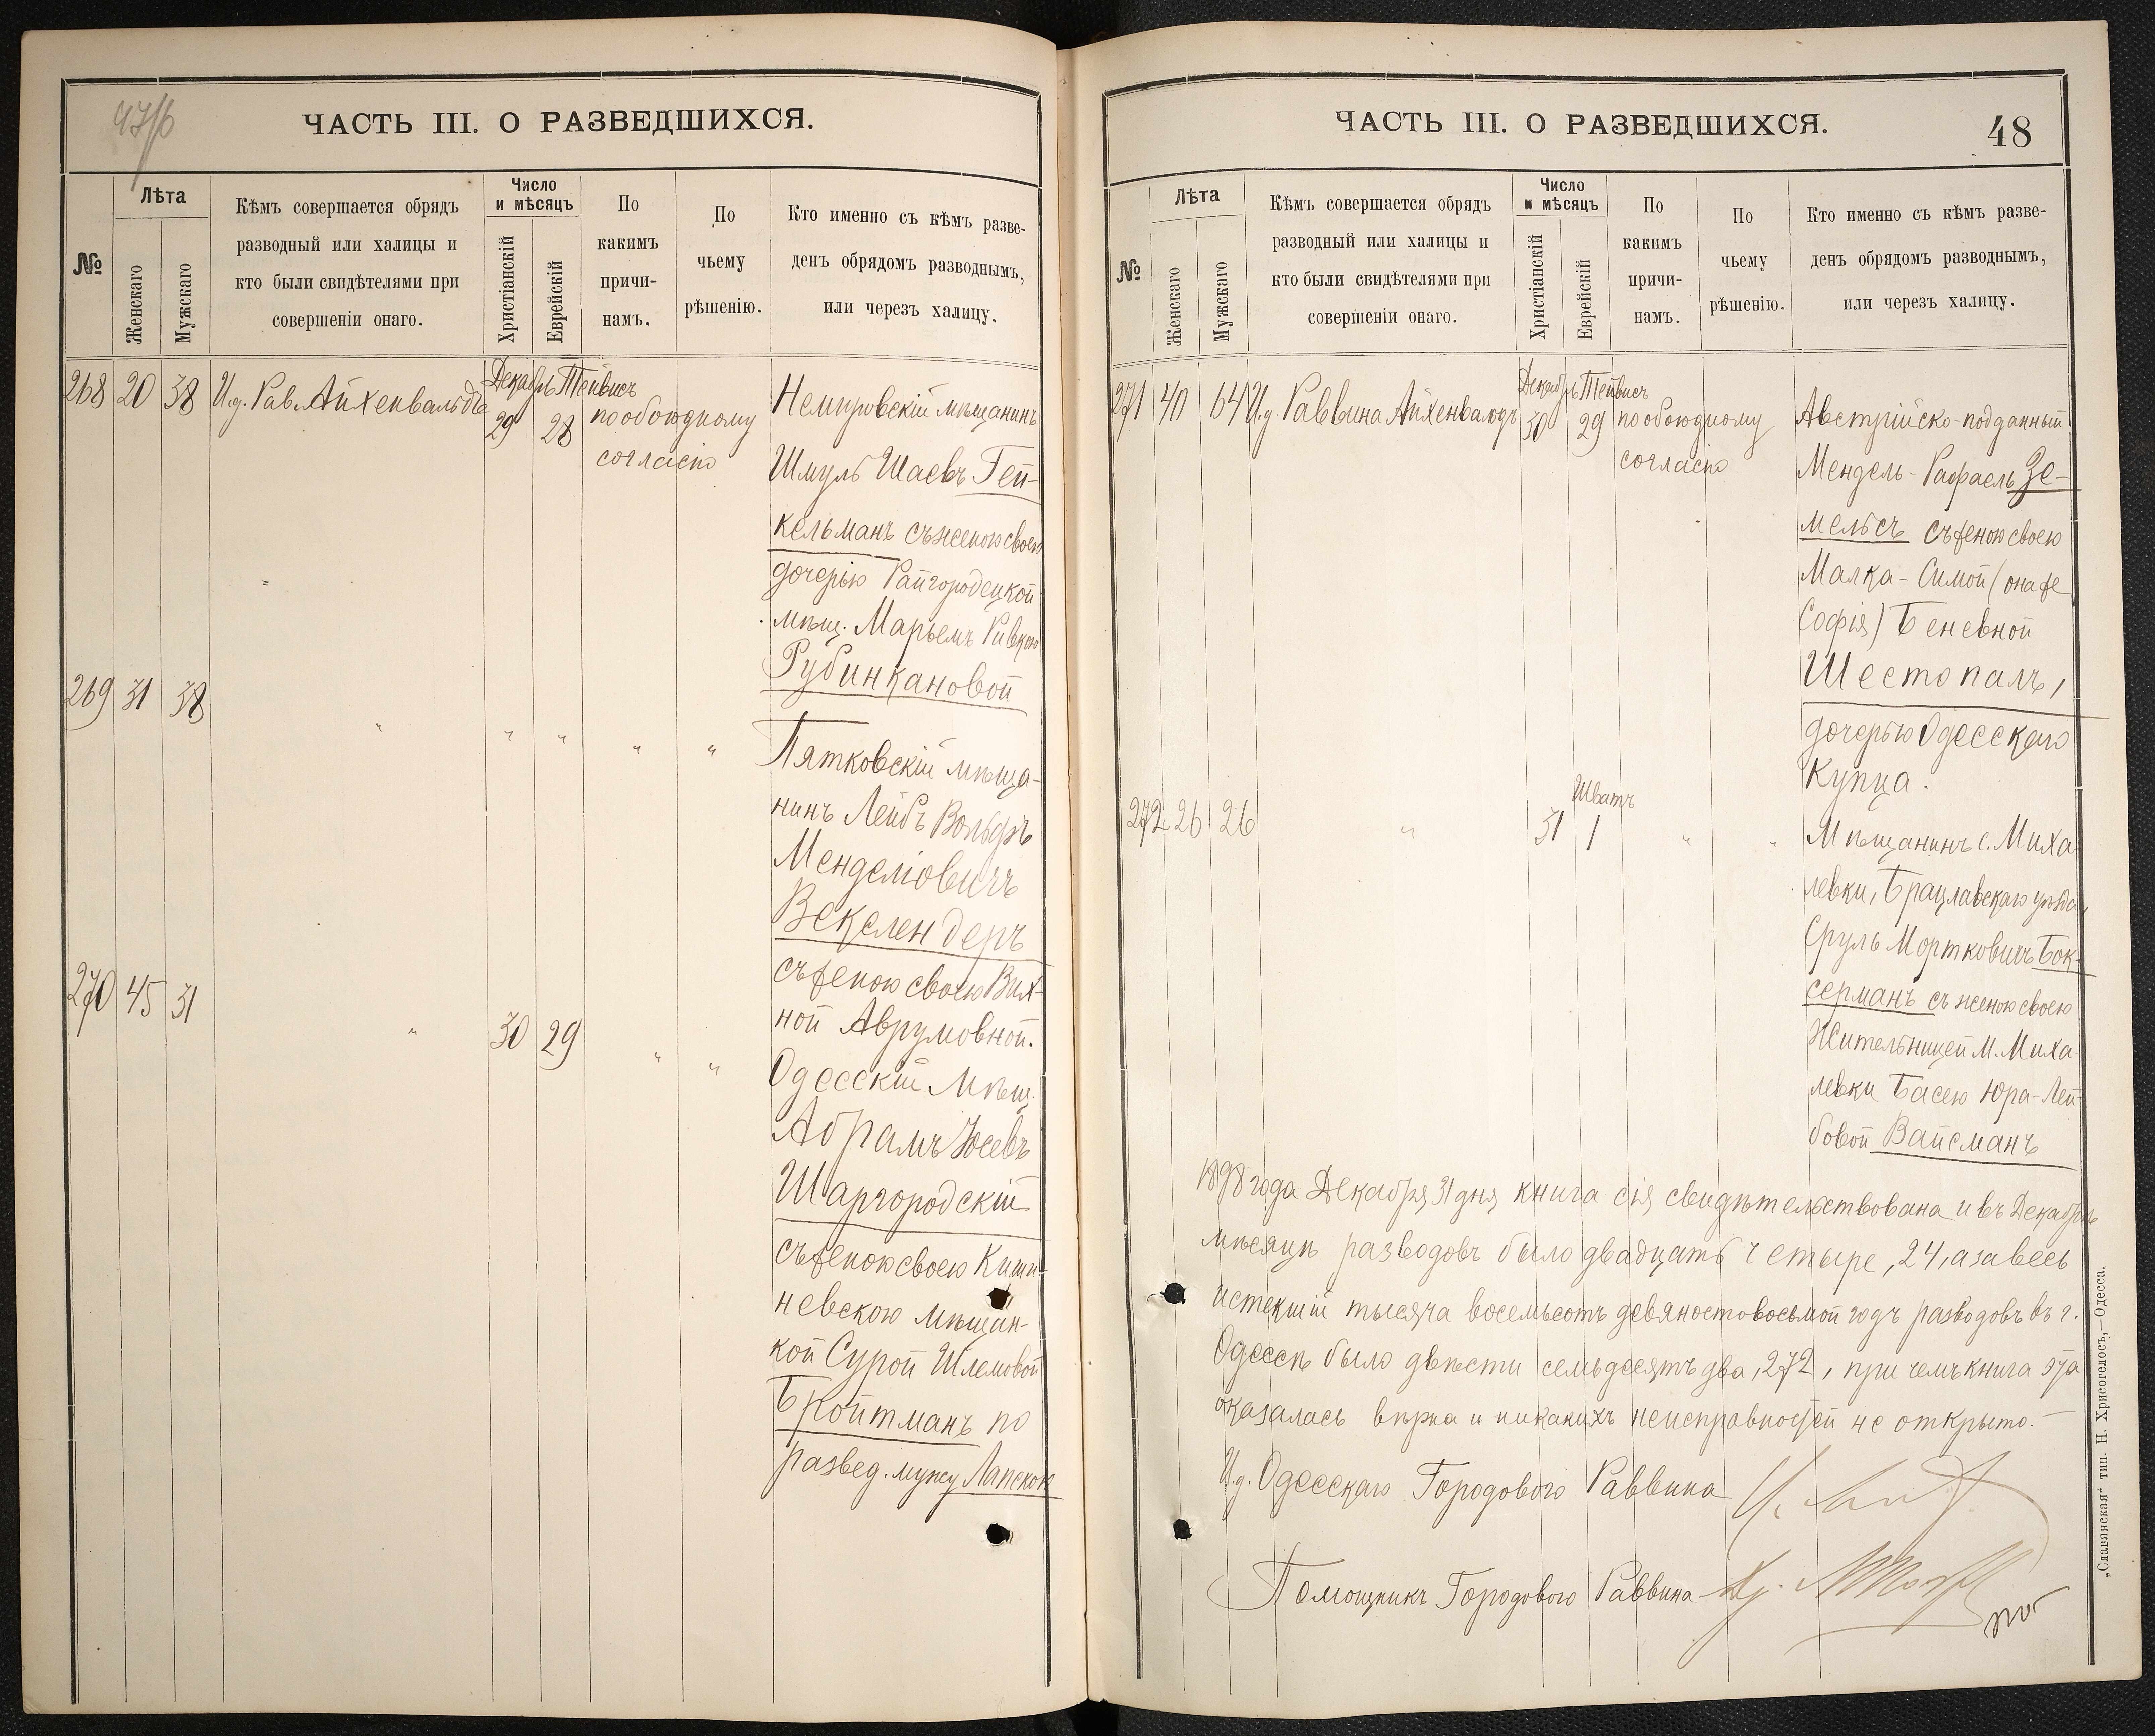 47/б
ЧАСТЬ III. О РАЗВЕДШИХСЯ.
№
Лѣта
Женскаго
Мужскаго
Кѣмъ совершается обрядъ
разводный или халицы и
кто были свидѣтелями при
совершеніи онаго.
Число
и мѣсяцъ
Христіанскій
Еврейскій
По
какимъ
причи-
намъ.
По
чьему
рѣшенію.
Кто именно съ кѣмъ разве-
денъ обрядомъ разводнымъ,
или черезъ халицу.
268 20 38 И.д. Рав. Айхенвальдъ
Декабрь Тейвисъ
29 28
по обоюдному
согласію
Немировскій мѣщанинъ
Шмуль Шаевъ Гей-
кельманъ съ женою своею
дочерію Райгородецкой
мѣщ. Марьемъ Ривкою
Рубинкановой
269 31 38 " " " " "
Пятковскій мѣща-
нинъ Лейбъ Вольфъ
Менделіовичъ
Векслендеръ
съ женою своею Вих-
ной Аврумовной.
270 45 31 " 30 29 " "
Одесскій мѣщ.
Абрамъ Іосевъ
Шаргородскій
съ женою своею Киши-
невскою мѣщан-
кой Сурой Шлемовой
Бройтманъ по
развед. мужу Лапскою
ЧАСТЬ III. О РАЗВЕДШИХСЯ.
48
№
Лѣта
Женскаго
Мужскаго
Кѣмъ совершается обрядъ
разводный или халицы и
кто были свидѣтелями при
совершеніи онаго.
Число
и мѣсяцъ
Христіанскій
Еврейскій
По
какимъ
причи-
намъ.
По
чьему
рѣшенію.
Кто именно съ кѣмъ разве-
денъ обрядомъ разводнымъ,
или черезъ халицу.
271 40 64 И.д. Раввина Айхенвальдъ
Декабрь Тейвисъ
30 29
по обоюдному
согласію
Австрійско-подданный
Мендель-Рафаель Зе-
мельсъ съ женою своею
Малка-Симой (она же
Софія) Беневной
Шестопалъ,
дочерью Одесскаго
Купца.
272 26 26 " 31
Шватъ
1 " "
Мѣщанинъ с. Миха-
левки, Брацлавскаго уѣзда,
Сруль Мортковичъ Бок-
серманъ съ женою своею
Жительницей м. Миха-
левки Басею Юра-Лей-
бовой Вайсманъ
1898 года Декабря 31 дня книга сія свидѣтельствована и въ Декабрѣ
мѣсяцѣ разводовъ было двадцать четыре, 24, а за весь
истекшій тысяча восемьсотъ девяносто восьмой годъ разводовъ въ г.
Одессѣ было двѣсти семьдесятъ два, 272, при чемъ книга эта
оказалась вѣрна и никакихъ неисправностей не открыто.
И.д. Одесскаго Городового Раввина
Помощникъ Городового Раввина
„Славянская“ тип. Н. Хрисогелосъ,—Одесса.